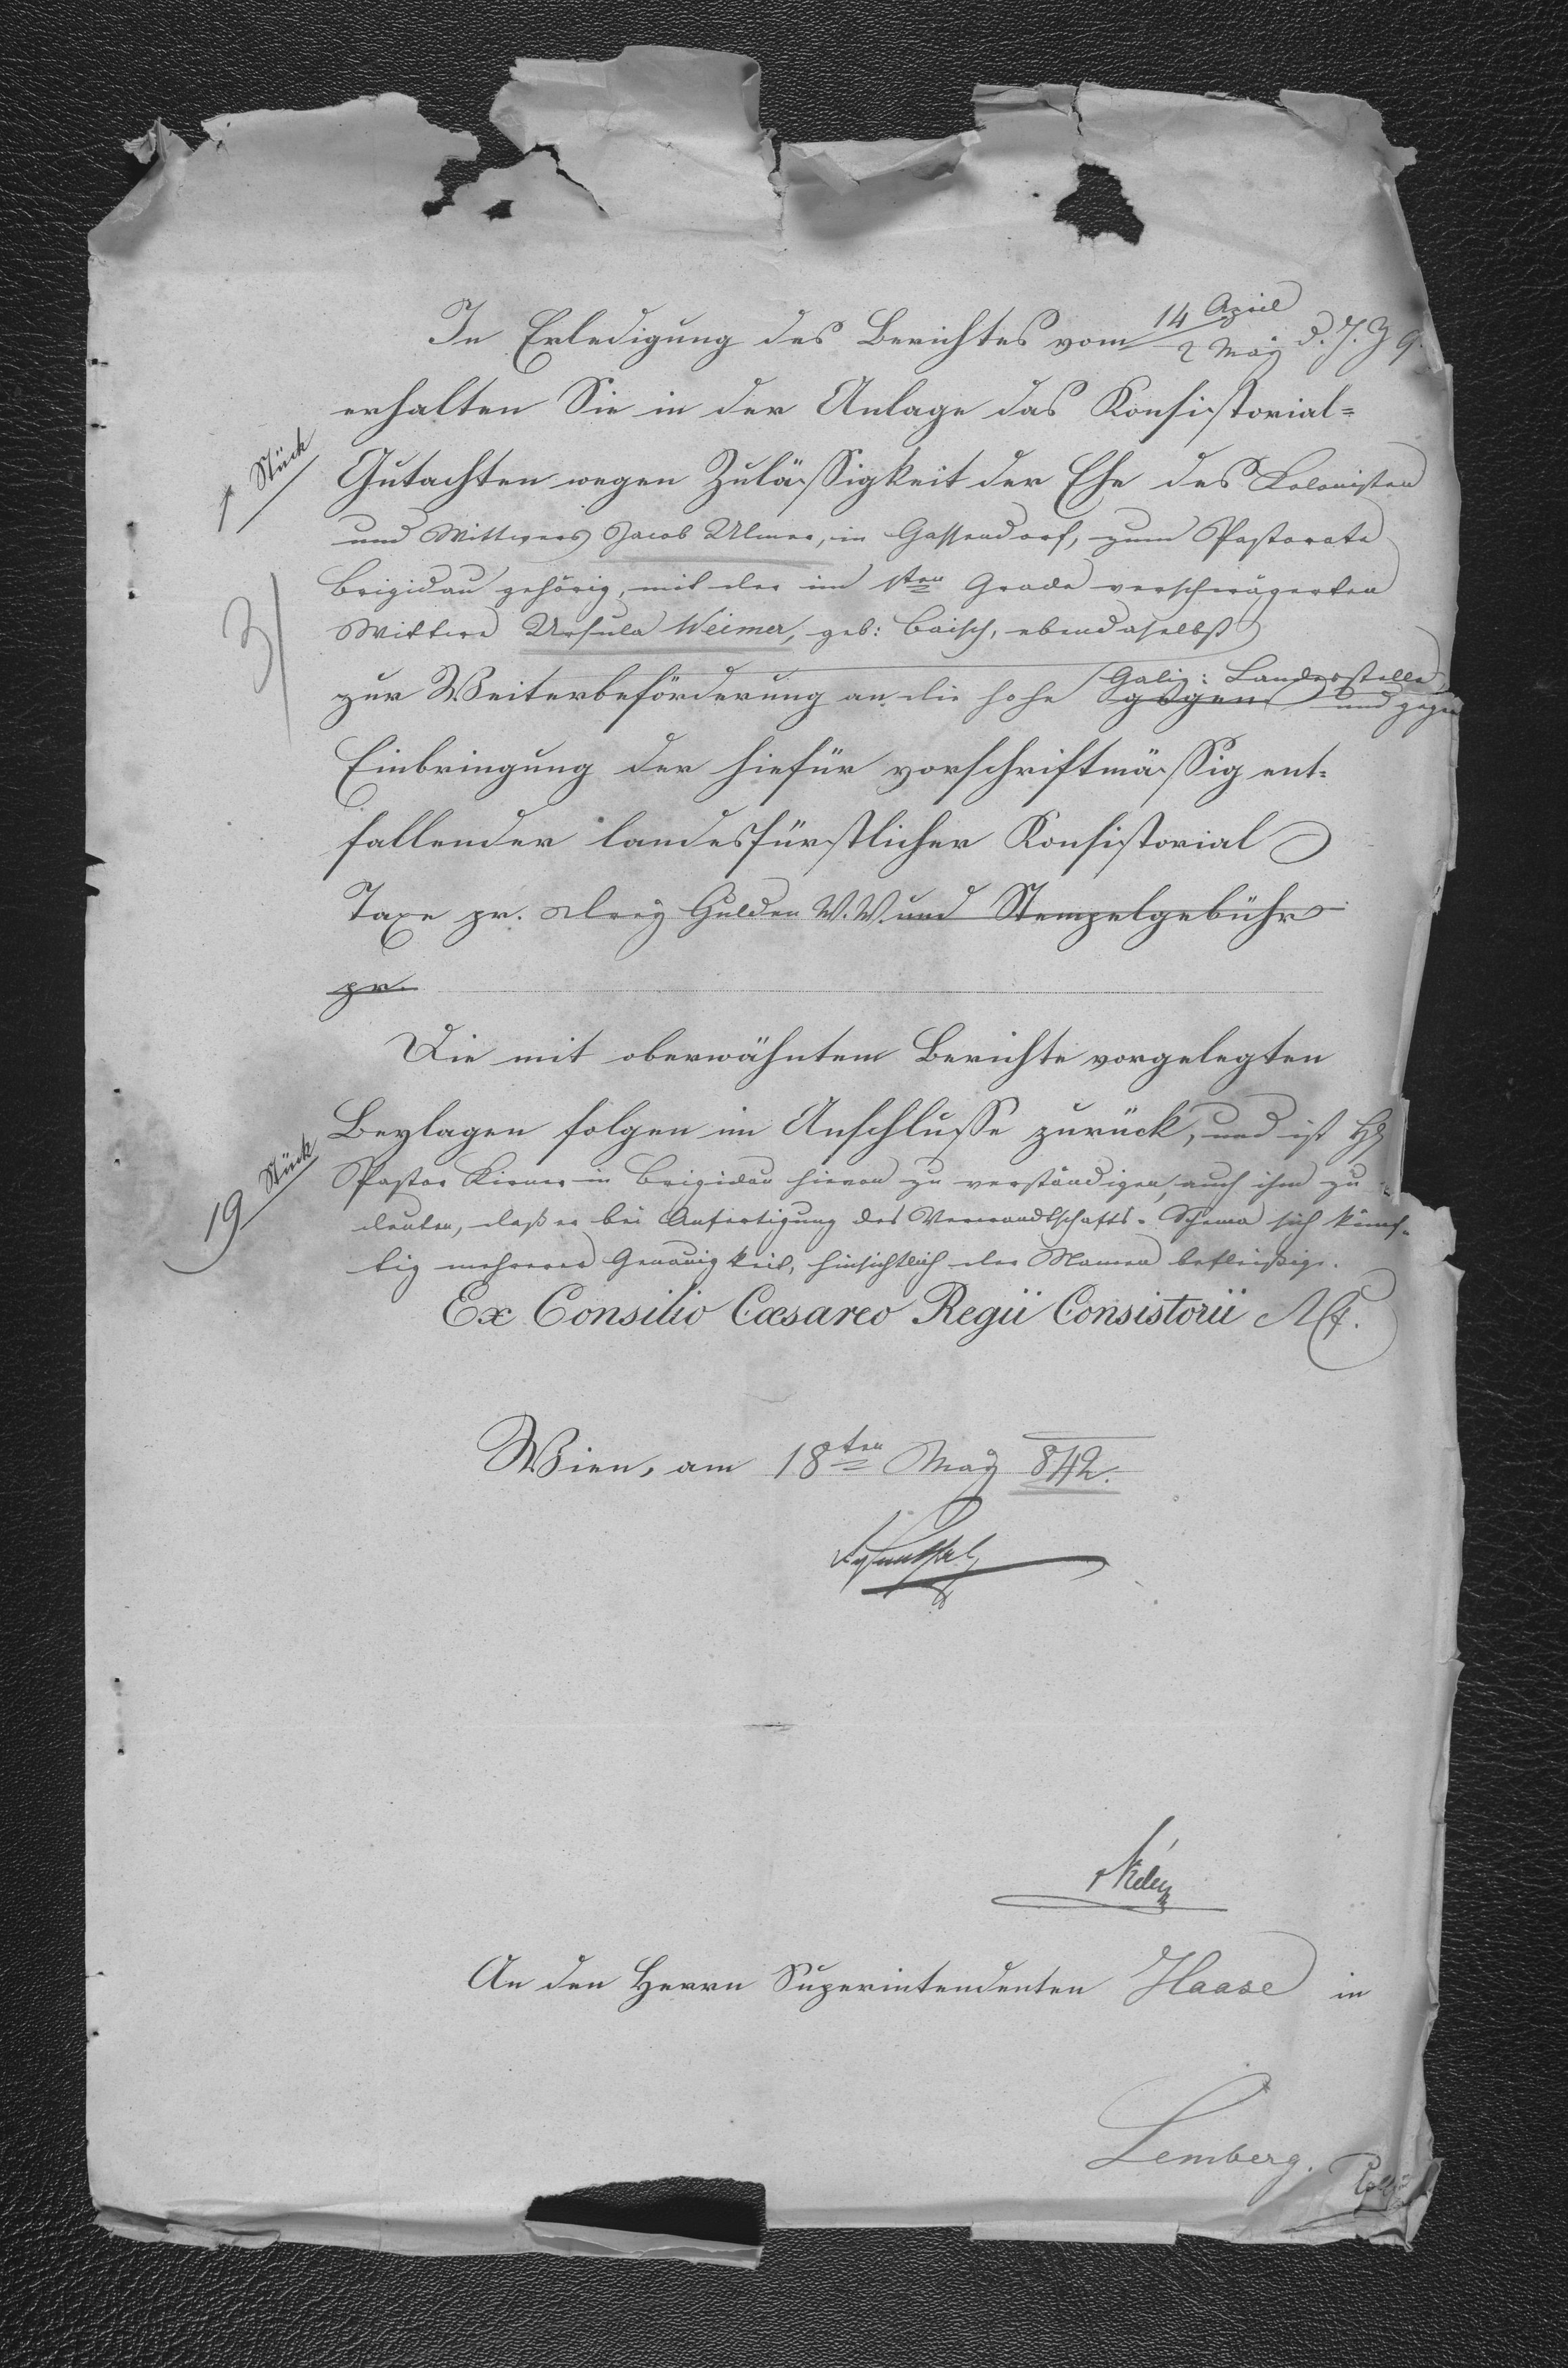 In Erledigung des Berichtes vom 14 April / 2 May d. J. Z 9.
erhalten Sie in der Anlage das Konsistorial=
1 Stück
Gutachten wegen Zuläßigkeit der Ehe des Kolonisten
und Wittwers Jacob Ulmer, in Gassendorf, zum Pastorate
Brigidau gehörig, mit der im 1ten Grade verschwägerten
3/
Wittwe Ursula Weimer, geb: Baisch, ebendaselbst
zur Weiterbeförderung an die hohe Galiz: Landesstelle gegen und gegen
Einbringung der hiefür vorschriftmäßig ent=
fallender landesfürstlicher Konsistorial
Taxe pr. drey Gulden W. W. und Stempelgebühr
pr.
Die mit oberwähntem Berichte vorgelegten
Beylagen folgen im Anschluße zurück, und ist H
19 Stück
Pastor Kirner in Brigidau hievon zu verständigen, auch ihm zu
deuten, daß er bei Anfertigung des Verwandtschafts-Schema sich künf=
tig mehrerer Genauigkeit, hinsichtlich der Namen befleißige.
Ex Consilio Cæsareo Regii Consistorii A. C.
Wien, am 18ten May 842.
An den Herrn Superintendenten Haase in
Lemberg.